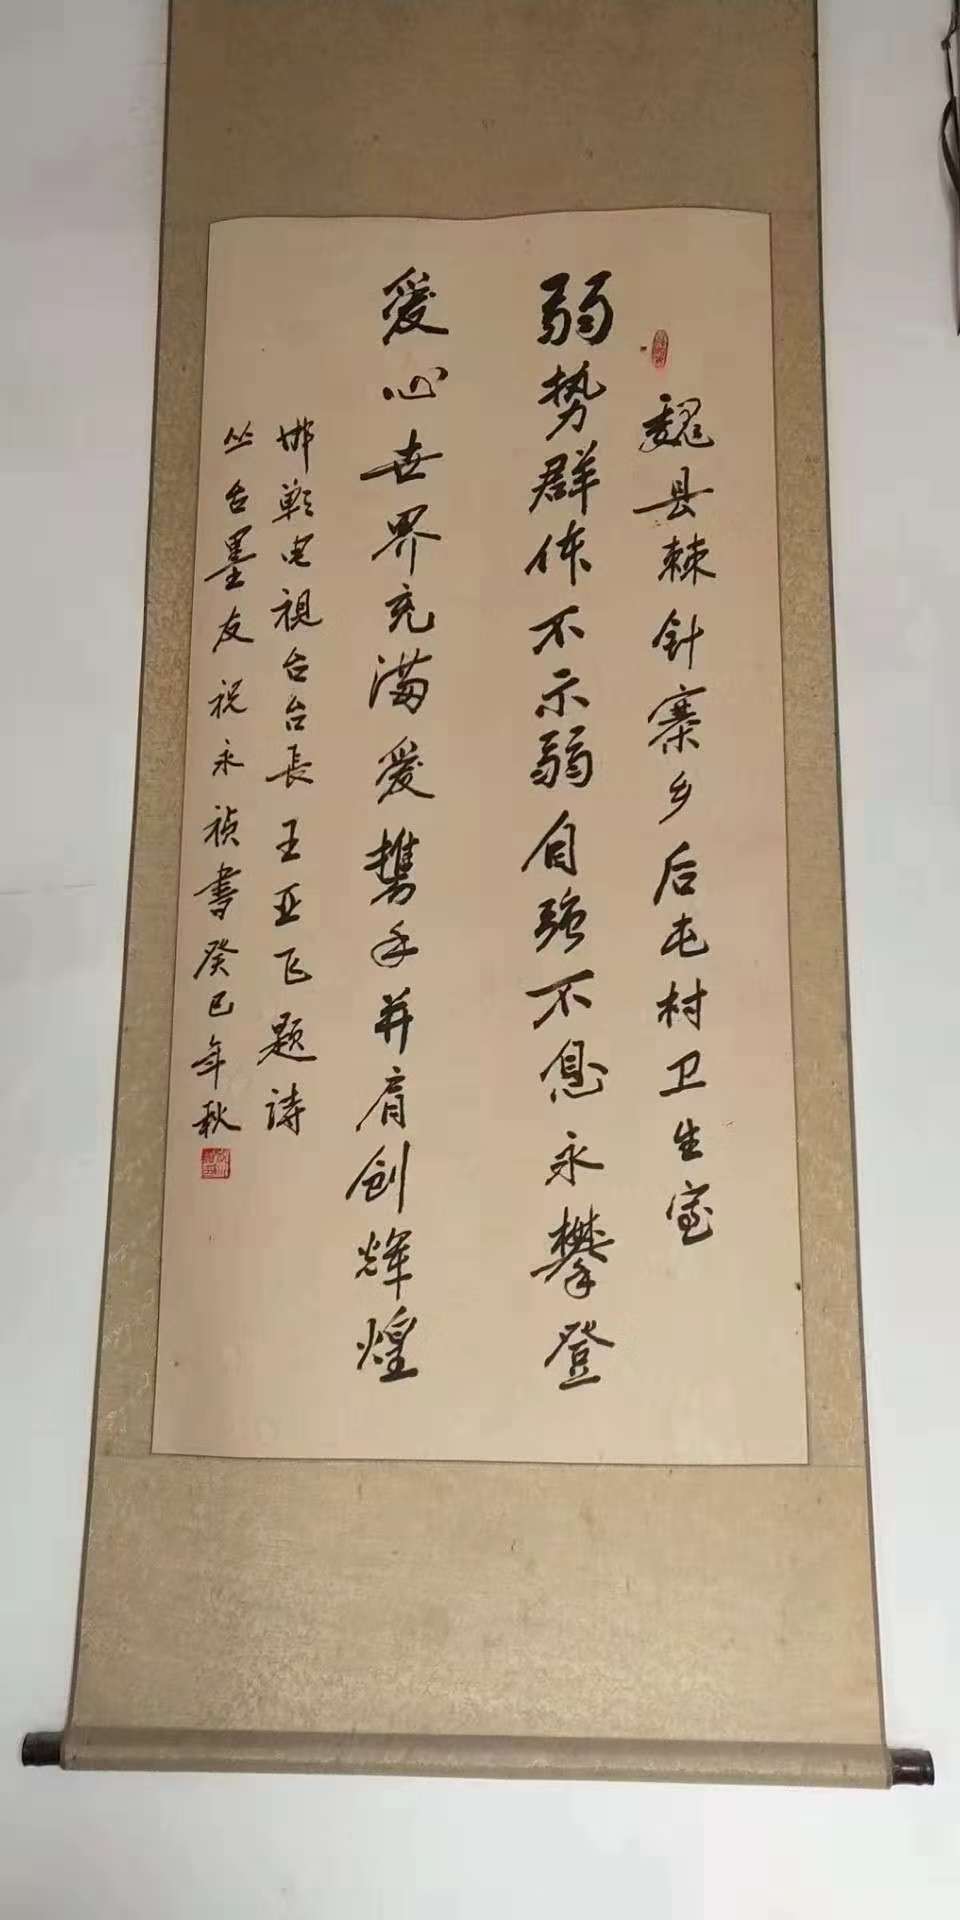 魏县棘针寨乡后屯村卫生室
弱势群体不示弱自强不息永攀登
爱心世界充满爱携手并肩创辉煌
邯郸电视台台長王亚飞题诗
丛台墨友祝永祯書癸巳年秋